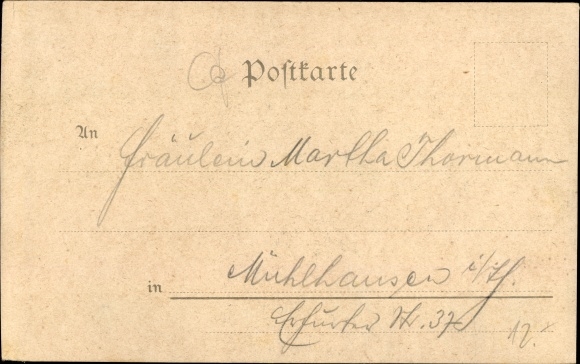 Postkarte
An Fräulein Martha Thormann
in Mühlhausen i/Th.
Erfurter Str. 37
12.